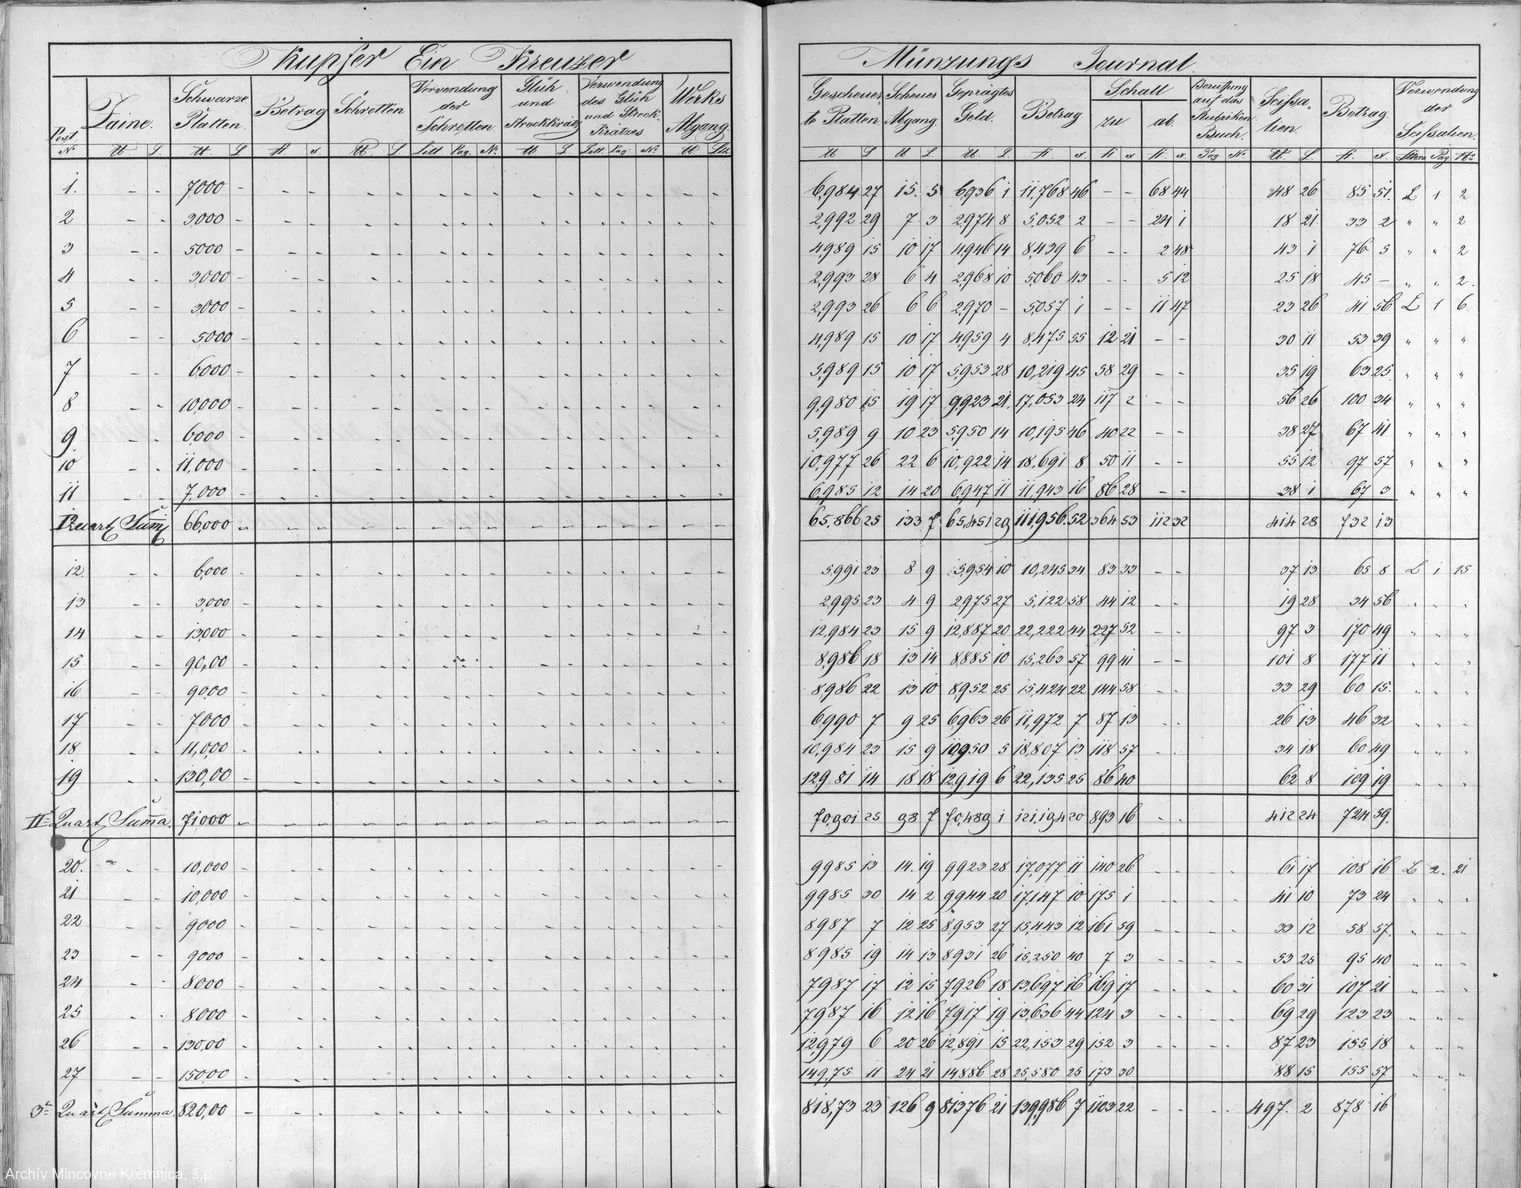 Kupfer Ein Kreuzer Münzungs Journal
Post Zaine. Schwarze Platten. Betrag Schroetten Verwendung der Schrotten Glüh und Verwendung des Glüh und Streck Krätzes Werks Abgang. Gescheuerte Platten. Scheuer Abgang Geprägtes Geld. Betrag Schall zu ab. auf das Rubriken Buch. Betrag Verwendung der
1. 7000 6,984 27 15. 5 6,936 1 11,768 46 68 44 48 26 85 51. L 1 2
2 3000 2,992 29 7 3 2,974 8 5,052 2 24 1 18 21 33 2 " " 2
3 5000 4,989 15 10 17 4,946 14 8,439 6 2 48 43 1 76 5 " " 2
4 3000 2,993 28 6 4 2,968 10 5,060 43 5 12 25 18 45 - " " 2.
5 3000 2,993 26 6 6 2,970 - 5,057 1 11 47 23 26 41 56 L 1 6
6 5000 4,989 15 10 17 4,959 4 8,475 55 12 21 30 11 53 39 " " "
7 6000 5,989 15 10 17 5,953 28 10,219 45 58 29 35 19 63 25 " " "
8 10,000 9,980 15 19 17 9,923 21 17,053 24 117 2 56 26 100 34 " " "
9. 6000 5,989 9 10 23 5,950 14 10,195 46 40 22 38 27 67 41 " " "
10 11,000 10,977 26 22 6 10,922 14 18,691 8 50 11 55 12 97 57 " " "
11 7,000 6,985 12 14 20 6,947 11 11,943 16 86 28 38 1 67 3 " " "
I Quart Sum 66,000 65,866 25 133 7 65,451 29 111,956 52 364 53 112 32 414 28 732 13
12 6,000 5,991 23 8 9 5,954 10 10,245 34 83 33 37 13 65 8 L 1 15
13 3,000 2,995 23 4 9 2,975 27 5,122 58 44 12 19 28 34 56
14 13,000 12,984 23 15 9 12,887 20 22,222 44 227 52 97 3 170 49
15 90,00 8,986 18 13 14 8,885 10 15,263 57 99 41 101 8 177 11
16 9000 8,986 22 13 10 8,952 25 15,424 22 144 58 33 29 60 15.
17 7000 6,990 7 9 25 6,963 26 11,972 7 87 13 26 13 46 32
18 11,000 10,984 23 15 9 10,950 5 18,807 13 118 57 34 18 60 49
19 130,00 129 81 14 18 18 12,919 6 22,135 25 86 40 62 8 109 19
II Quart Summa. 71000 70,901 25 98 7 70,489 1 121,194 20 893 16 412 24 724 59.
20. 10,000 9985 13 14. 19 9923 28 17,077 11 140 26 61 17 108 16 L 2. 21
21 10,000 9985 30 14 2 9944 20 17,147 10 175 1 41 10 73 24
22 9000 8987 7 12 25 8,953 27 15,443 12 161 59 33 12 58 57.
23 9000 8985 19 14 13 8,931 26 15,250 40 7 3 53 25 95 40
24 8000 7987 17 12 15 7926 18 13,697 16 169 17 60 31 107 21
25 8000 7987 16 12 16 7917 19 13,636 44 124 3 69 29 123 23
26 130,00 12,979 6 20 26 12,891 15 22,153 29 152 3 87 23 155 18
27 150,00 149,75 11 24 21 14886 28 25,580 25 173 30 88 15 155 57
3t Quart Summa 820,00 818,73 23 126 9 81376 21 139,986 7 1103 22 497. 2 878 16
Archív Mincovne Kremnica, š.p.